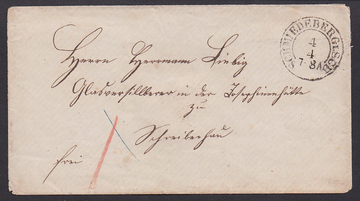 Herrn Herrmann Liebig
Glasversilberer in der Josephinenhütte
zu
Schreiberhau
frei
SCHMIEDEBERG
4
4